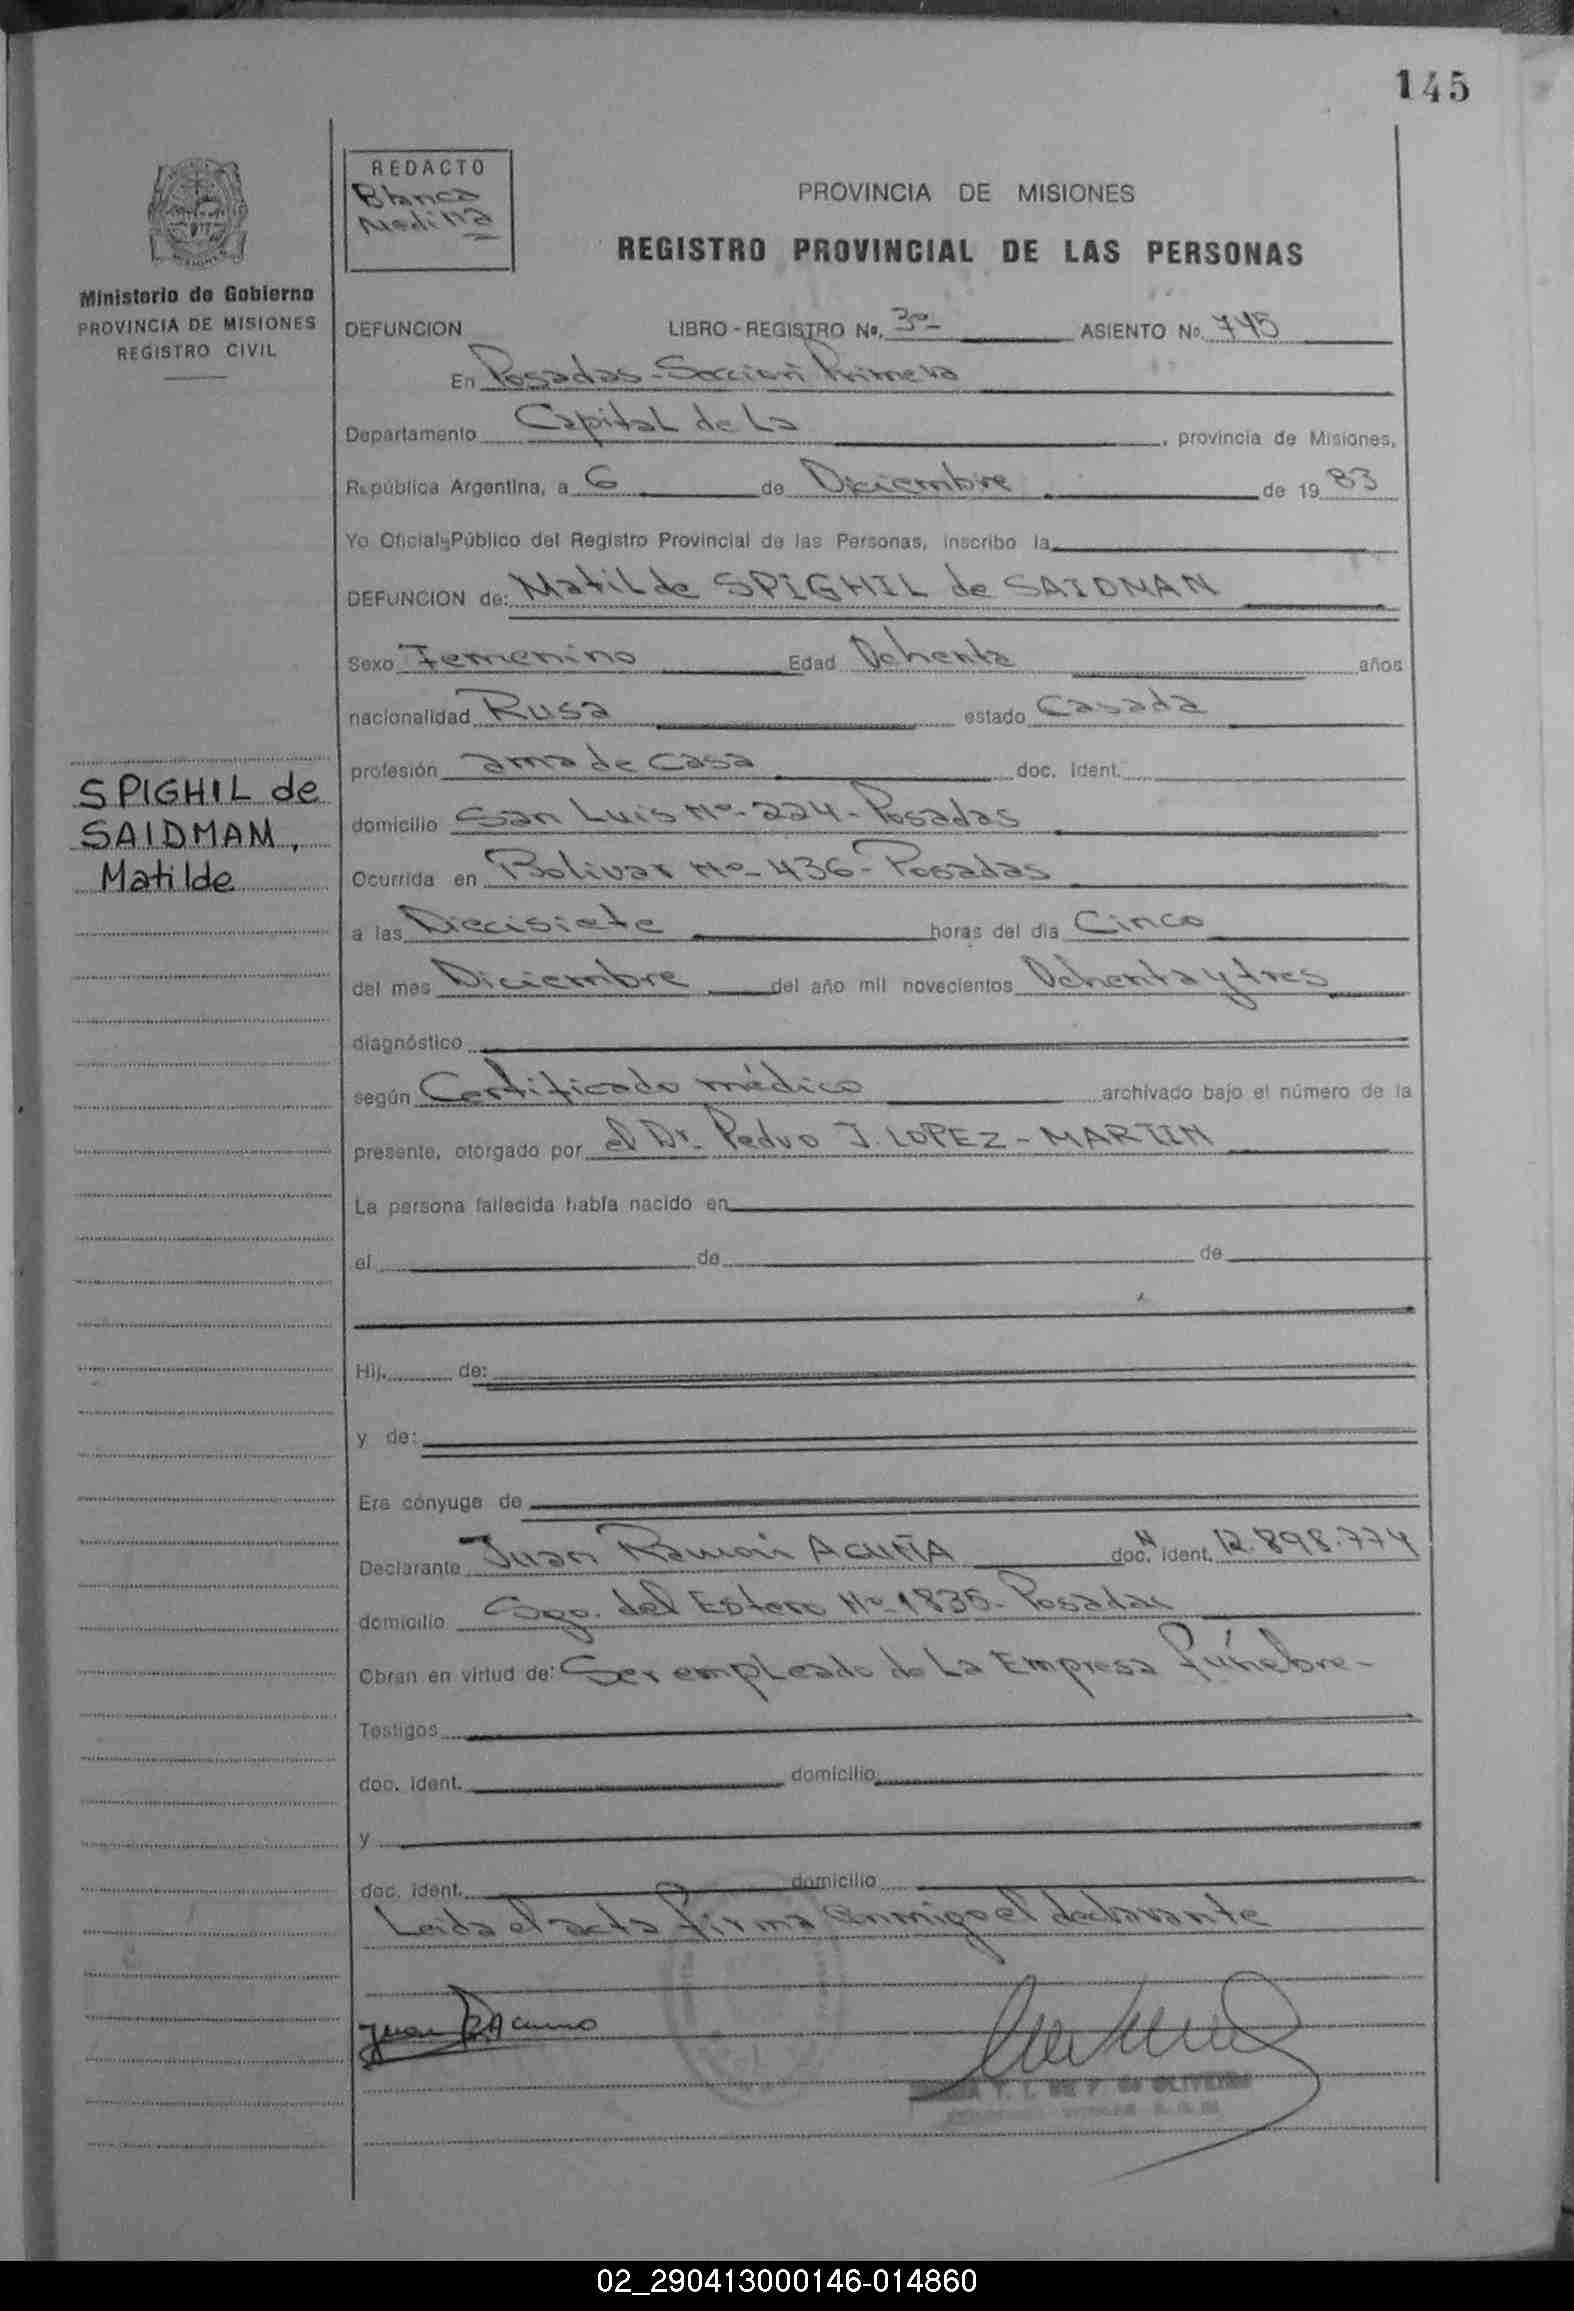 145
REDACTO
Blanca
Medina
PROVINCIA DE MISIONES
REGISTRO PROVINCIAL DE LAS PERSONAS
Ministerio de Gobierno
PROVINCIA DE MISIONES
REGISTRO CIVIL
DEFUNCION LIBRO - REGISTRO No. 3º- ASIENTO No. 745
En Posadas-Sección Primera
Departamento Capital de La , provincia de Misiones,
República Argentina, a 6 de Diciembre de 19 83
Yo Oficial Público del Registro Provincial de las Personas, inscribo la
DEFUNCION de: Matilde SPIGHIL de SAIDMAN
Sexo Femenino Edad Ochenta años
nacionalidad Rusa estado Casada
profesión ama de casa doc. ident.
SPIGHIL de
SAIDMAM,
Matilde
domicilio San Luis Nº-224-Posadas
Ocurrida en Bolivar Nº-436-Posadas
a las Diecisiete horas del día Cinco
del mes Diciembre del año mil novecientos Ochenta y tres
diagnóstico
según Certificado médico archivado bajo el número de la
presente, otorgado por el Dr. Pedro J. LOPEZ-MARTIN
La persona fallecida había nacido en
el de de
Hij. de:
y de:
Era cónyuge de
Declarante Juan Ramón ACUÑA doc. N ident. 12.898.774
domicilio Sgo. del Estero Nº-1835-Posadas
Obran en virtud de: Ser empleado de La Empresa fúnebre-
Testigos
doc. ident. domicilio
y
doc. ident. domicilio
Leida el acta firma conmigo el declarante
Juan R Acuña
DE OLIVEIRA
02_290413000146-014860